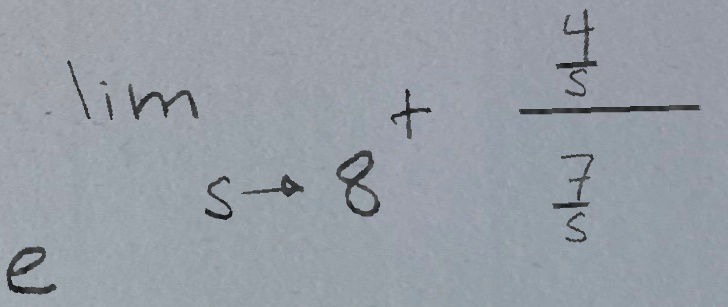 e^{\lim_{s \to 8^{+}} \frac{\frac{4}{s}}{\frac{7}{s}}}